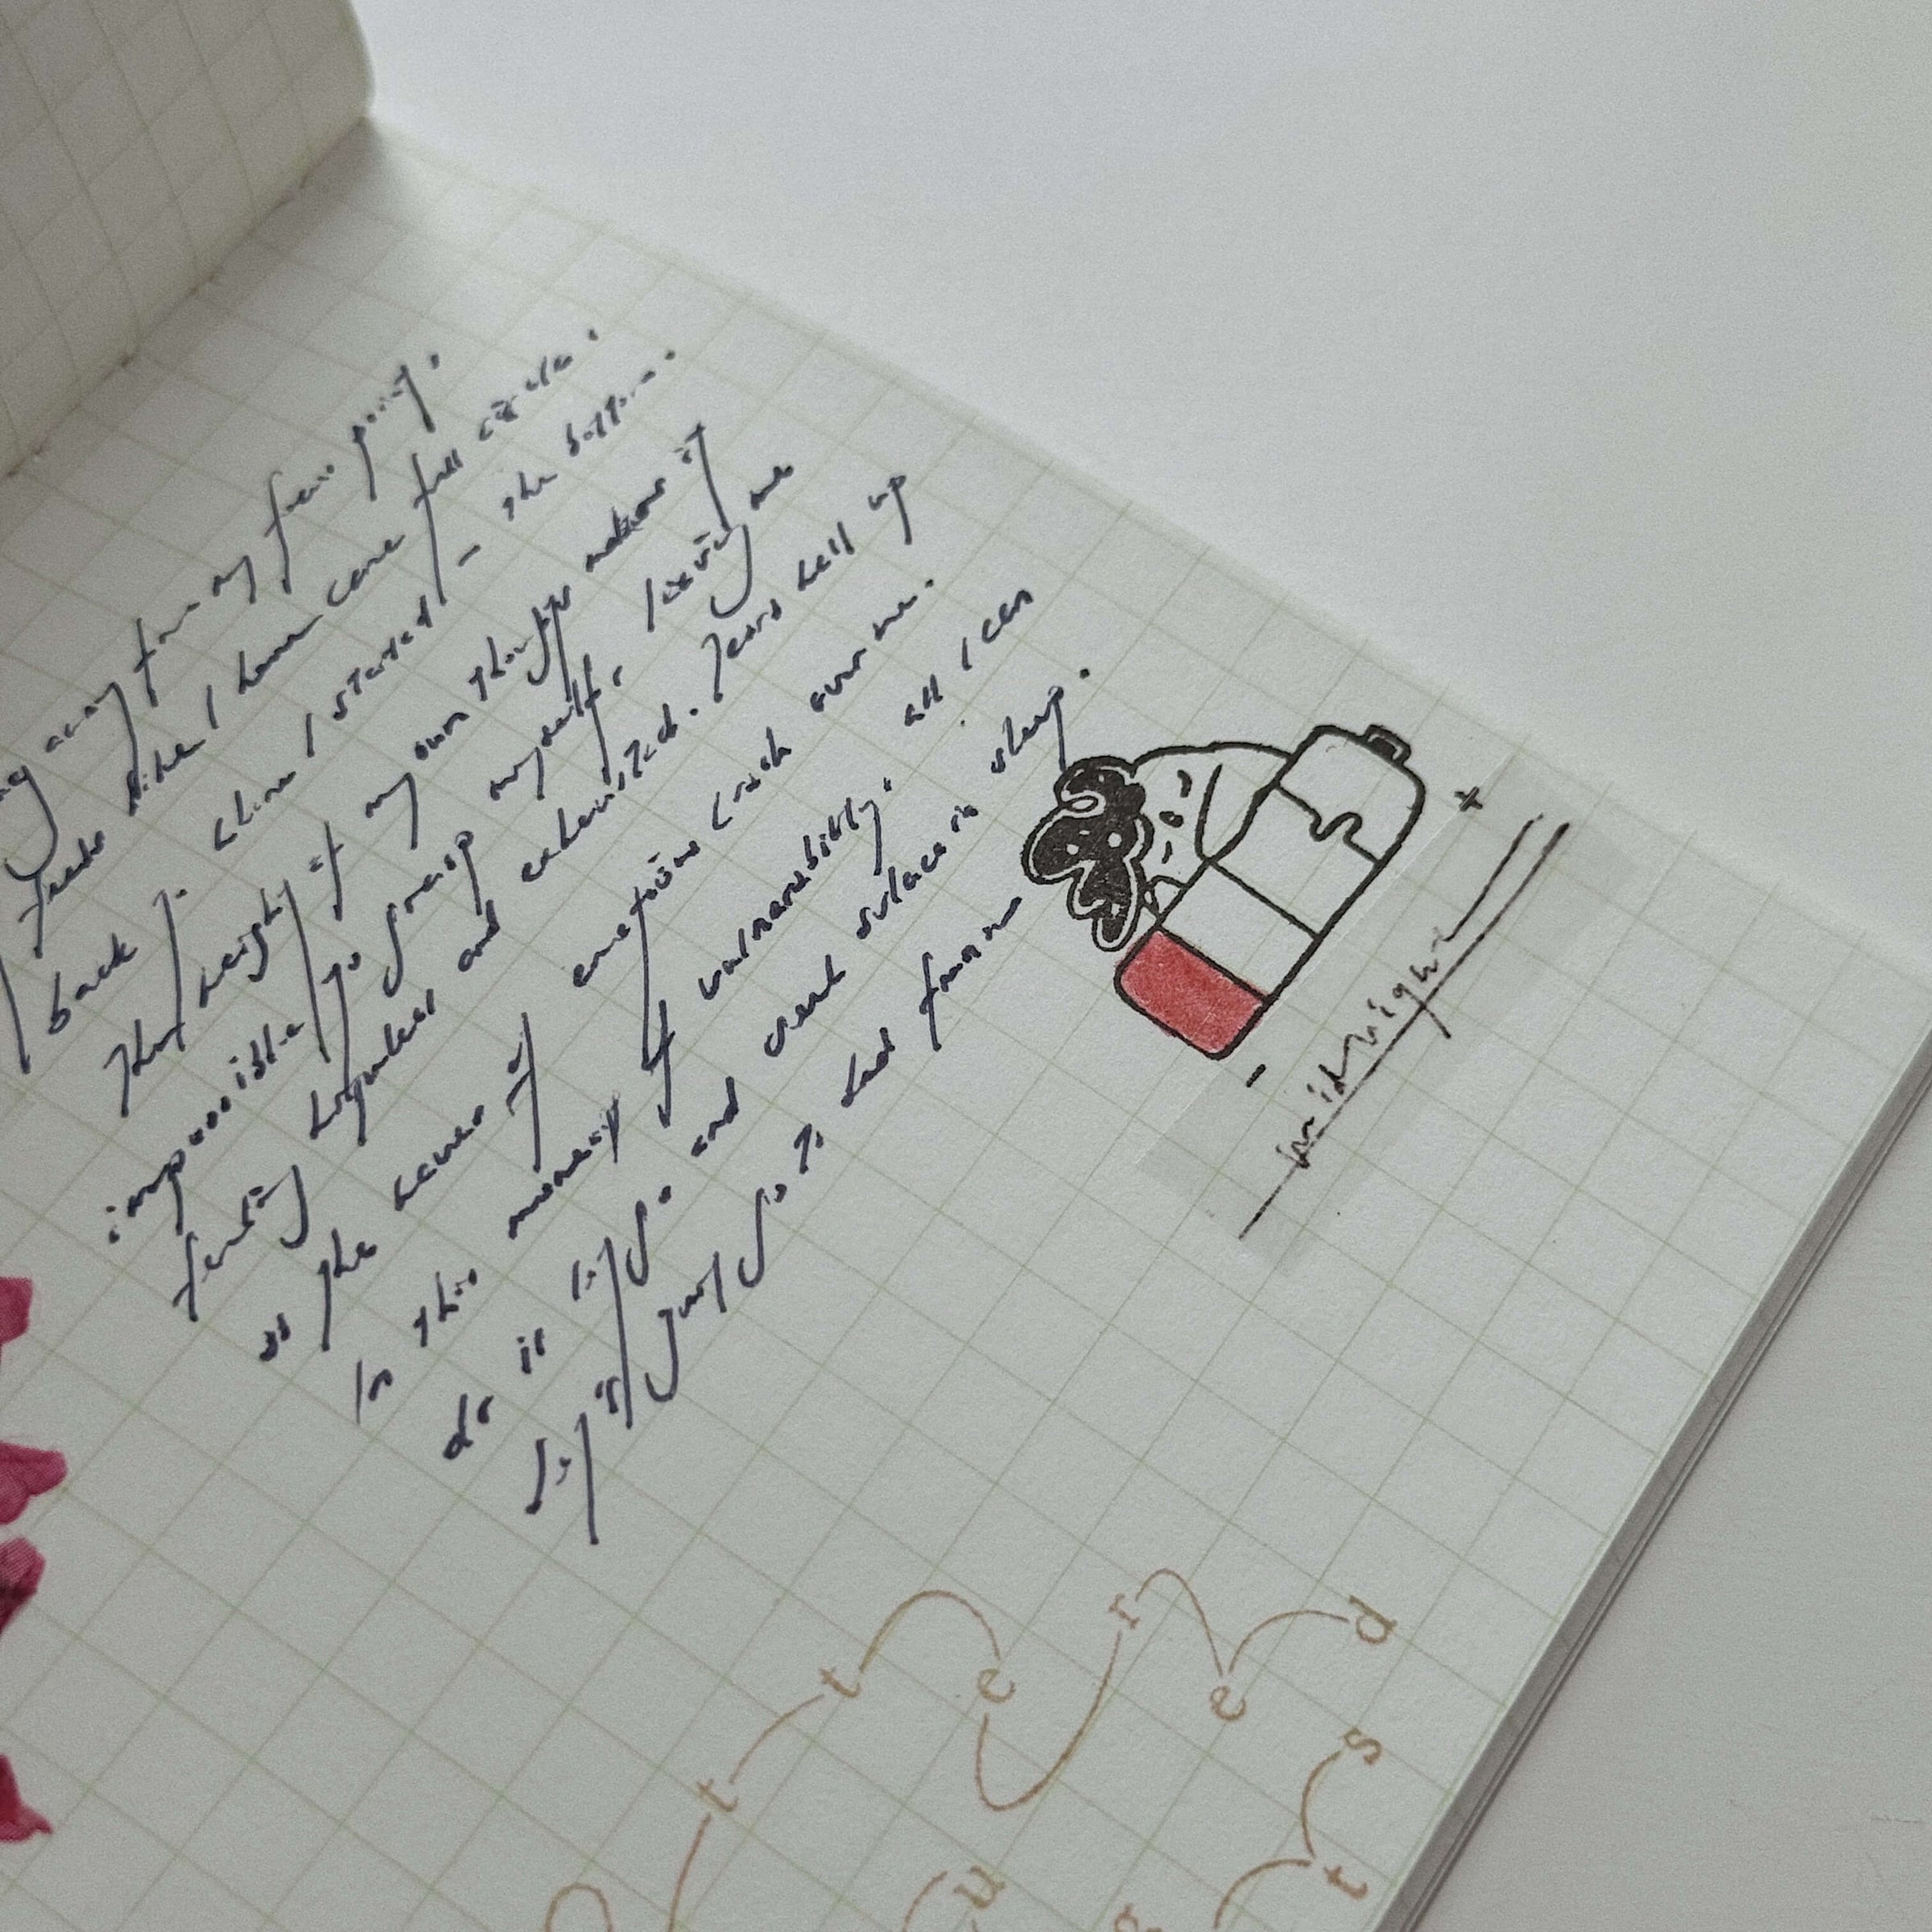 away from my point.
feels like I have come full circle.
back I started - the bottom.
The weight of my own thoughts makes it
impossible to grasp myself, leaving me
feeling and exhausted. Tears well up
as the waves of emotion crash over me.
In this moment of vulnerability, all I can
do is let go and seek solace in sleep.
Let it just go to
+
-
midnight
t t e r e d
s t
u